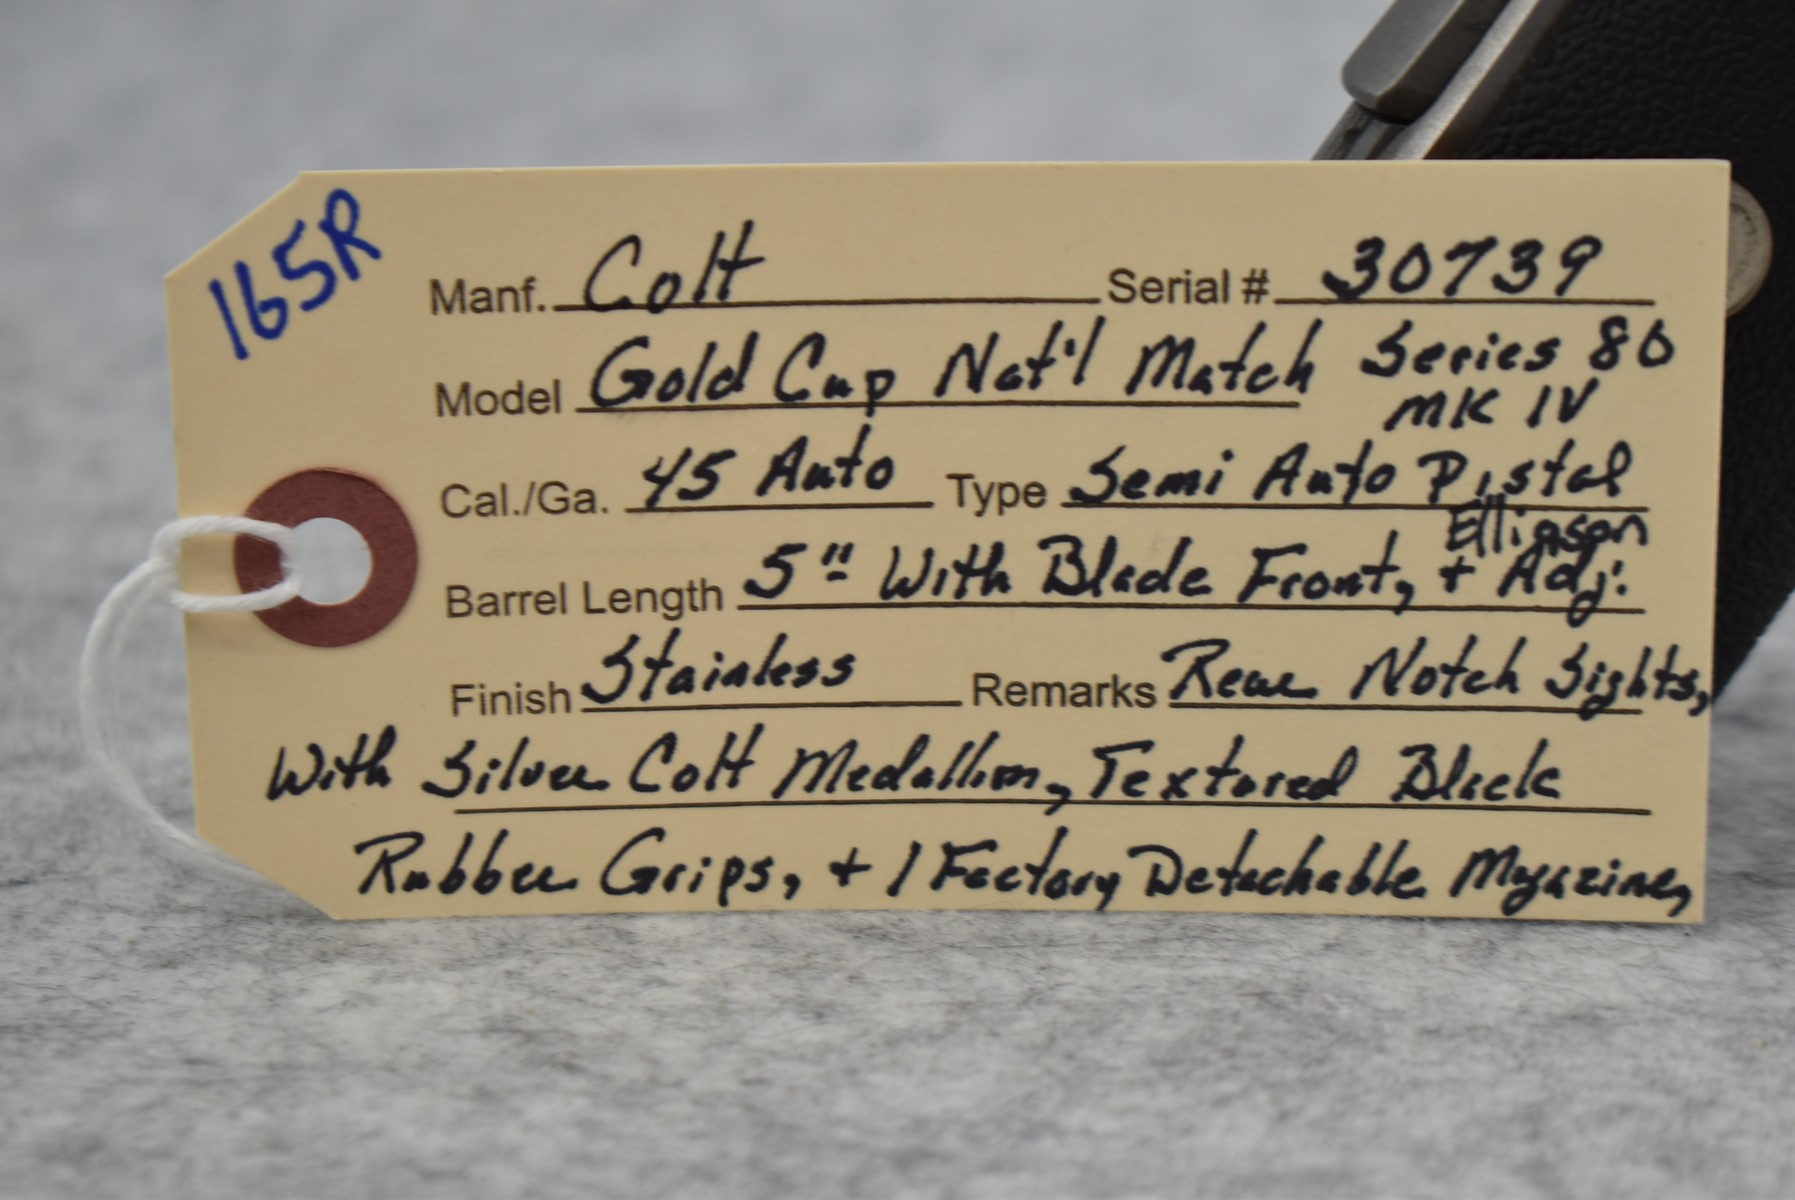 165R
Manf. Colt Serial # 30739
Model Gold Cup Nat'l Match Series 80
MK IV
Cal./Ga. 45 Auto Type Semi Auto Pistol
Elliason
Barrel Length 5" With Blade Front, + Adj.
Finish Stainless Remarks Rear Notch Sights,
With Silver Colt Medallion, Textured Black
Rubber Grips, + 1 Factory Detachable Magazine,